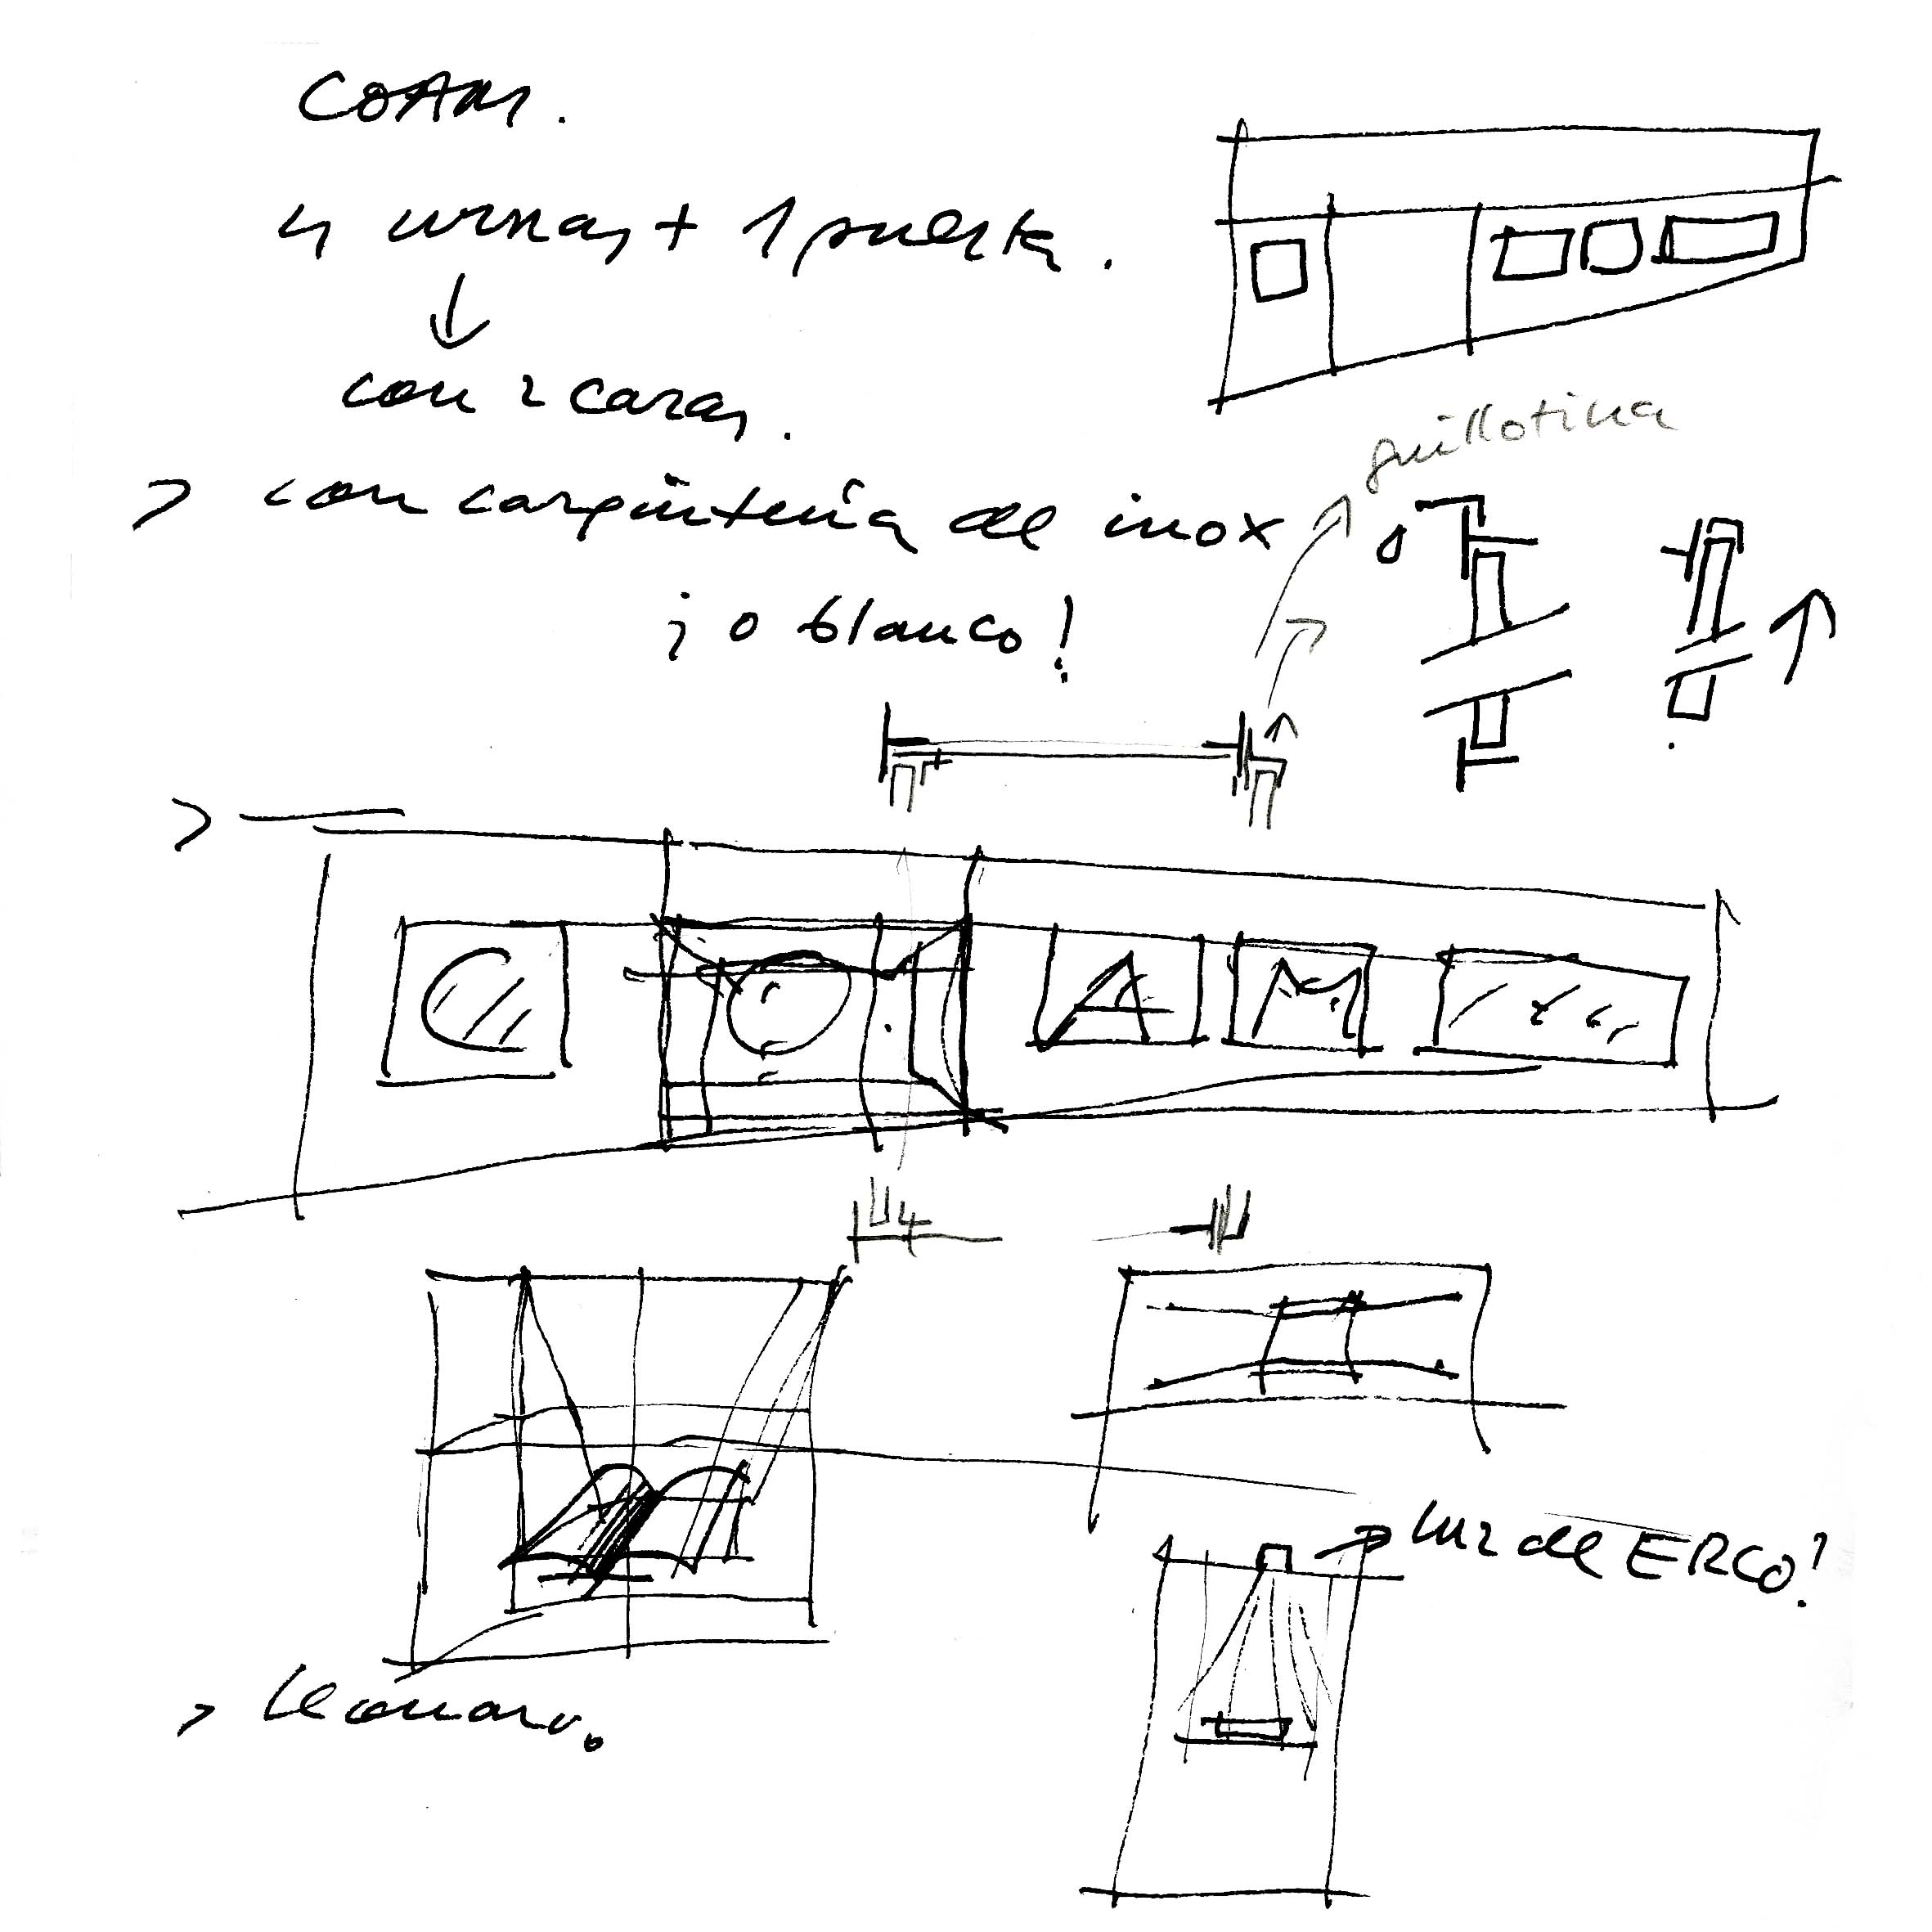 COAM.
4 urnas + 1 puerta.
con 2 caras.
> con carpintería de inox
¡o blanco!
guillotina
C O A M
luz de ERCO!
>